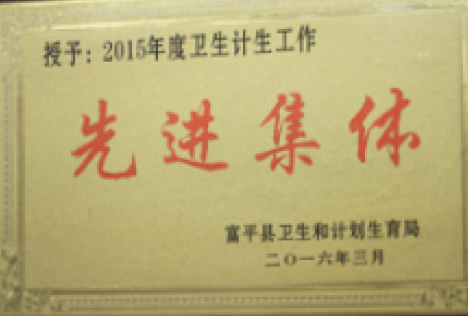 授予：2015年度卫生计生工作
先进集体
富平县卫生和计划生育局
二〇一六年三月